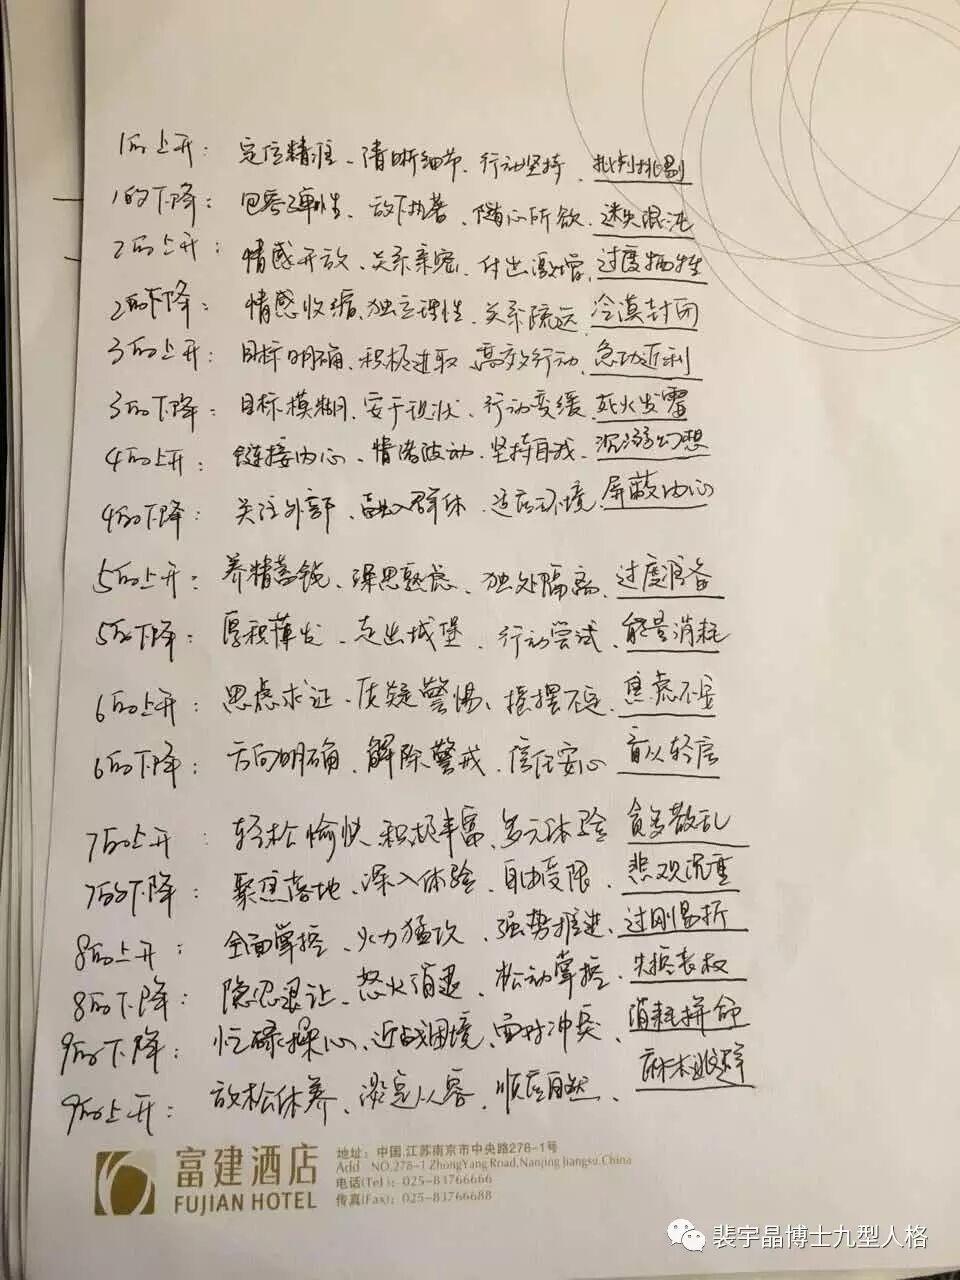 1的上升：定位精准、清晰细节、行动坚持、批判挑剔
1的下降：包容弹性、放下执著、随心所欲、迷失混沌
2的上升：情感开放、关系亲密、付出激增、过度牺牲
2的下降：情感收缩、独立理性、关系疏远、冷漠封闭
3的上升：目标明确、积极进取、高效行动、急功近利
3的下降：目标模糊、安于现状、行动变缓、死火发霉
4的上升：链接内心、情绪波动、坚持自我、沉溺幻想
4的下降：关注外部、融入群体、适应环境、屏蔽内心
5的上升：养精蓄锐、深思熟虑、独处隔离、过度准备
5的下降：厚积薄发、走出城堡、行动尝试、能量消耗
6的上升：思虑求证、质疑警惕、摇摆不定、焦虑不安
6的下降：方向明确、解除警戒、信任安心 盲从轻信
7的上升：轻松愉快、积极丰富、多元体验 贪多散乱
7的下降：聚焦落地、深入体验、自由受限、悲观沉重
8的上升：全面掌控、火力猛攻、强势推进、过刚易折
8的下降：隐忍退让、怒火消退、松动掌控、失控丧权
9的下降：忙碌操心、近战困境、面对冲突、消耗拼命
9的上升：放松休养、淡定从容、顺应自然、麻木逃避
富建酒店 地址：中国.江苏南京市中央路278-1号
FUJIAN HOTEL Add NO.278-1 ZhongYang Road,Nanjing Jiangsu,China
电话(Tel)：025-83766666
传真(Fax)：025-83766688
裴宇晶博士九型人格